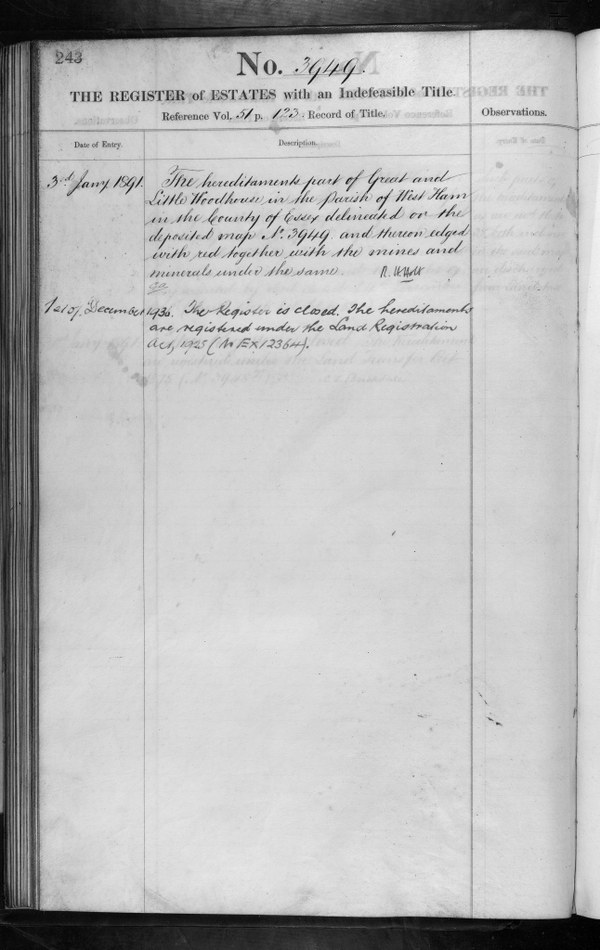 243
No. 3949.
THE REGISTER of ESTATES with an Indefeasible Title.
Reference Vol. 51 p. 123. Record of Title.
Observations.
Date of Entry.
Description.
3rd Jany 1891.
The hereditaments part of Great and
Little Woodhouse in the Parish of West Ham
in the County of Essex delineated on the
deposited map No. 3949 and thereon edged
with red together with the mines and
minerals under the same
1st of December 1936. The Register is closed. The hereditaments
are registered under the Land Registration
Act, 1925 (No EX12364).